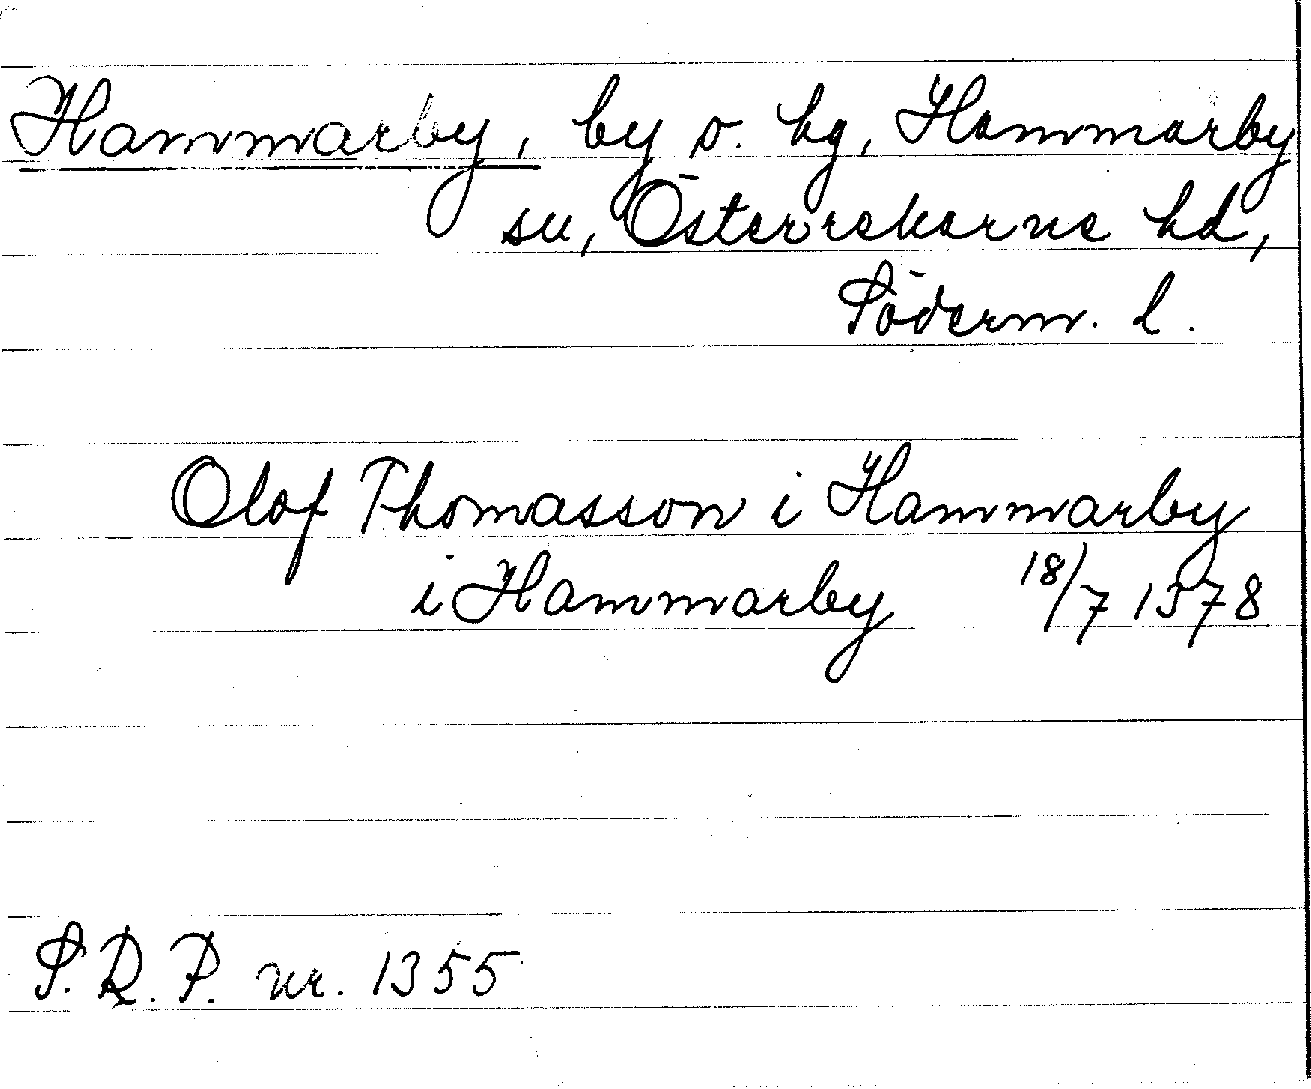 Hammarby, by o. hg, Hammarby
sn, Österrekarne hd,
Söderm. l.
Olof Thomasson i Hammarby
i Hammarby 18/7 1378
S. R. P. nr. 1355